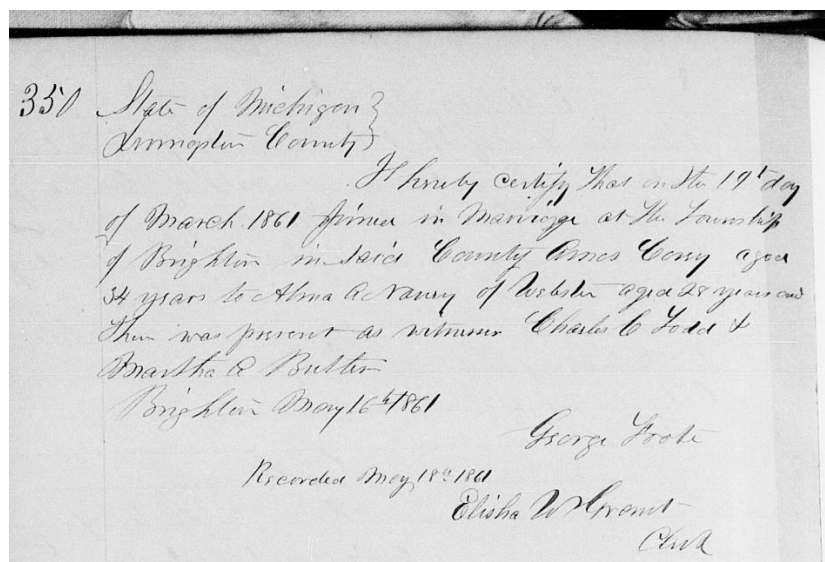 350 State of Michigan }
Livingston County }
I hereby certify that on the 19t day
of March 1861 joined in Marriage at the Township
of Brighton in said County Amos Cory aged
34 years to Alma A of Webster aged 28 years and
there was present as witnesses Charles C Todd &
Martha A Butler
Brighton May 16th 1861
George Foote
Recorded May 18th 1861
Elisha W Grant
Clerk